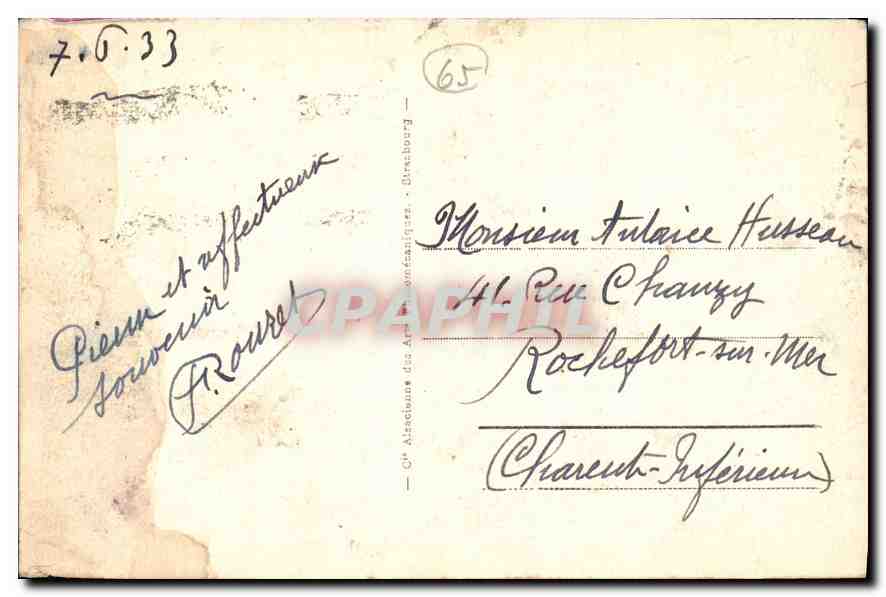 7.6.33
65
Pieux et affectueux
souvenir
Rouzet
— Cie Alsacienne des Arts Photomécaniques. - Strasbourg —
Monsieur Aulaire Husseau
41. Rue Chanzy
Rochefort-sur-Mer
(Charente-Inférieure)
CPAPHIL